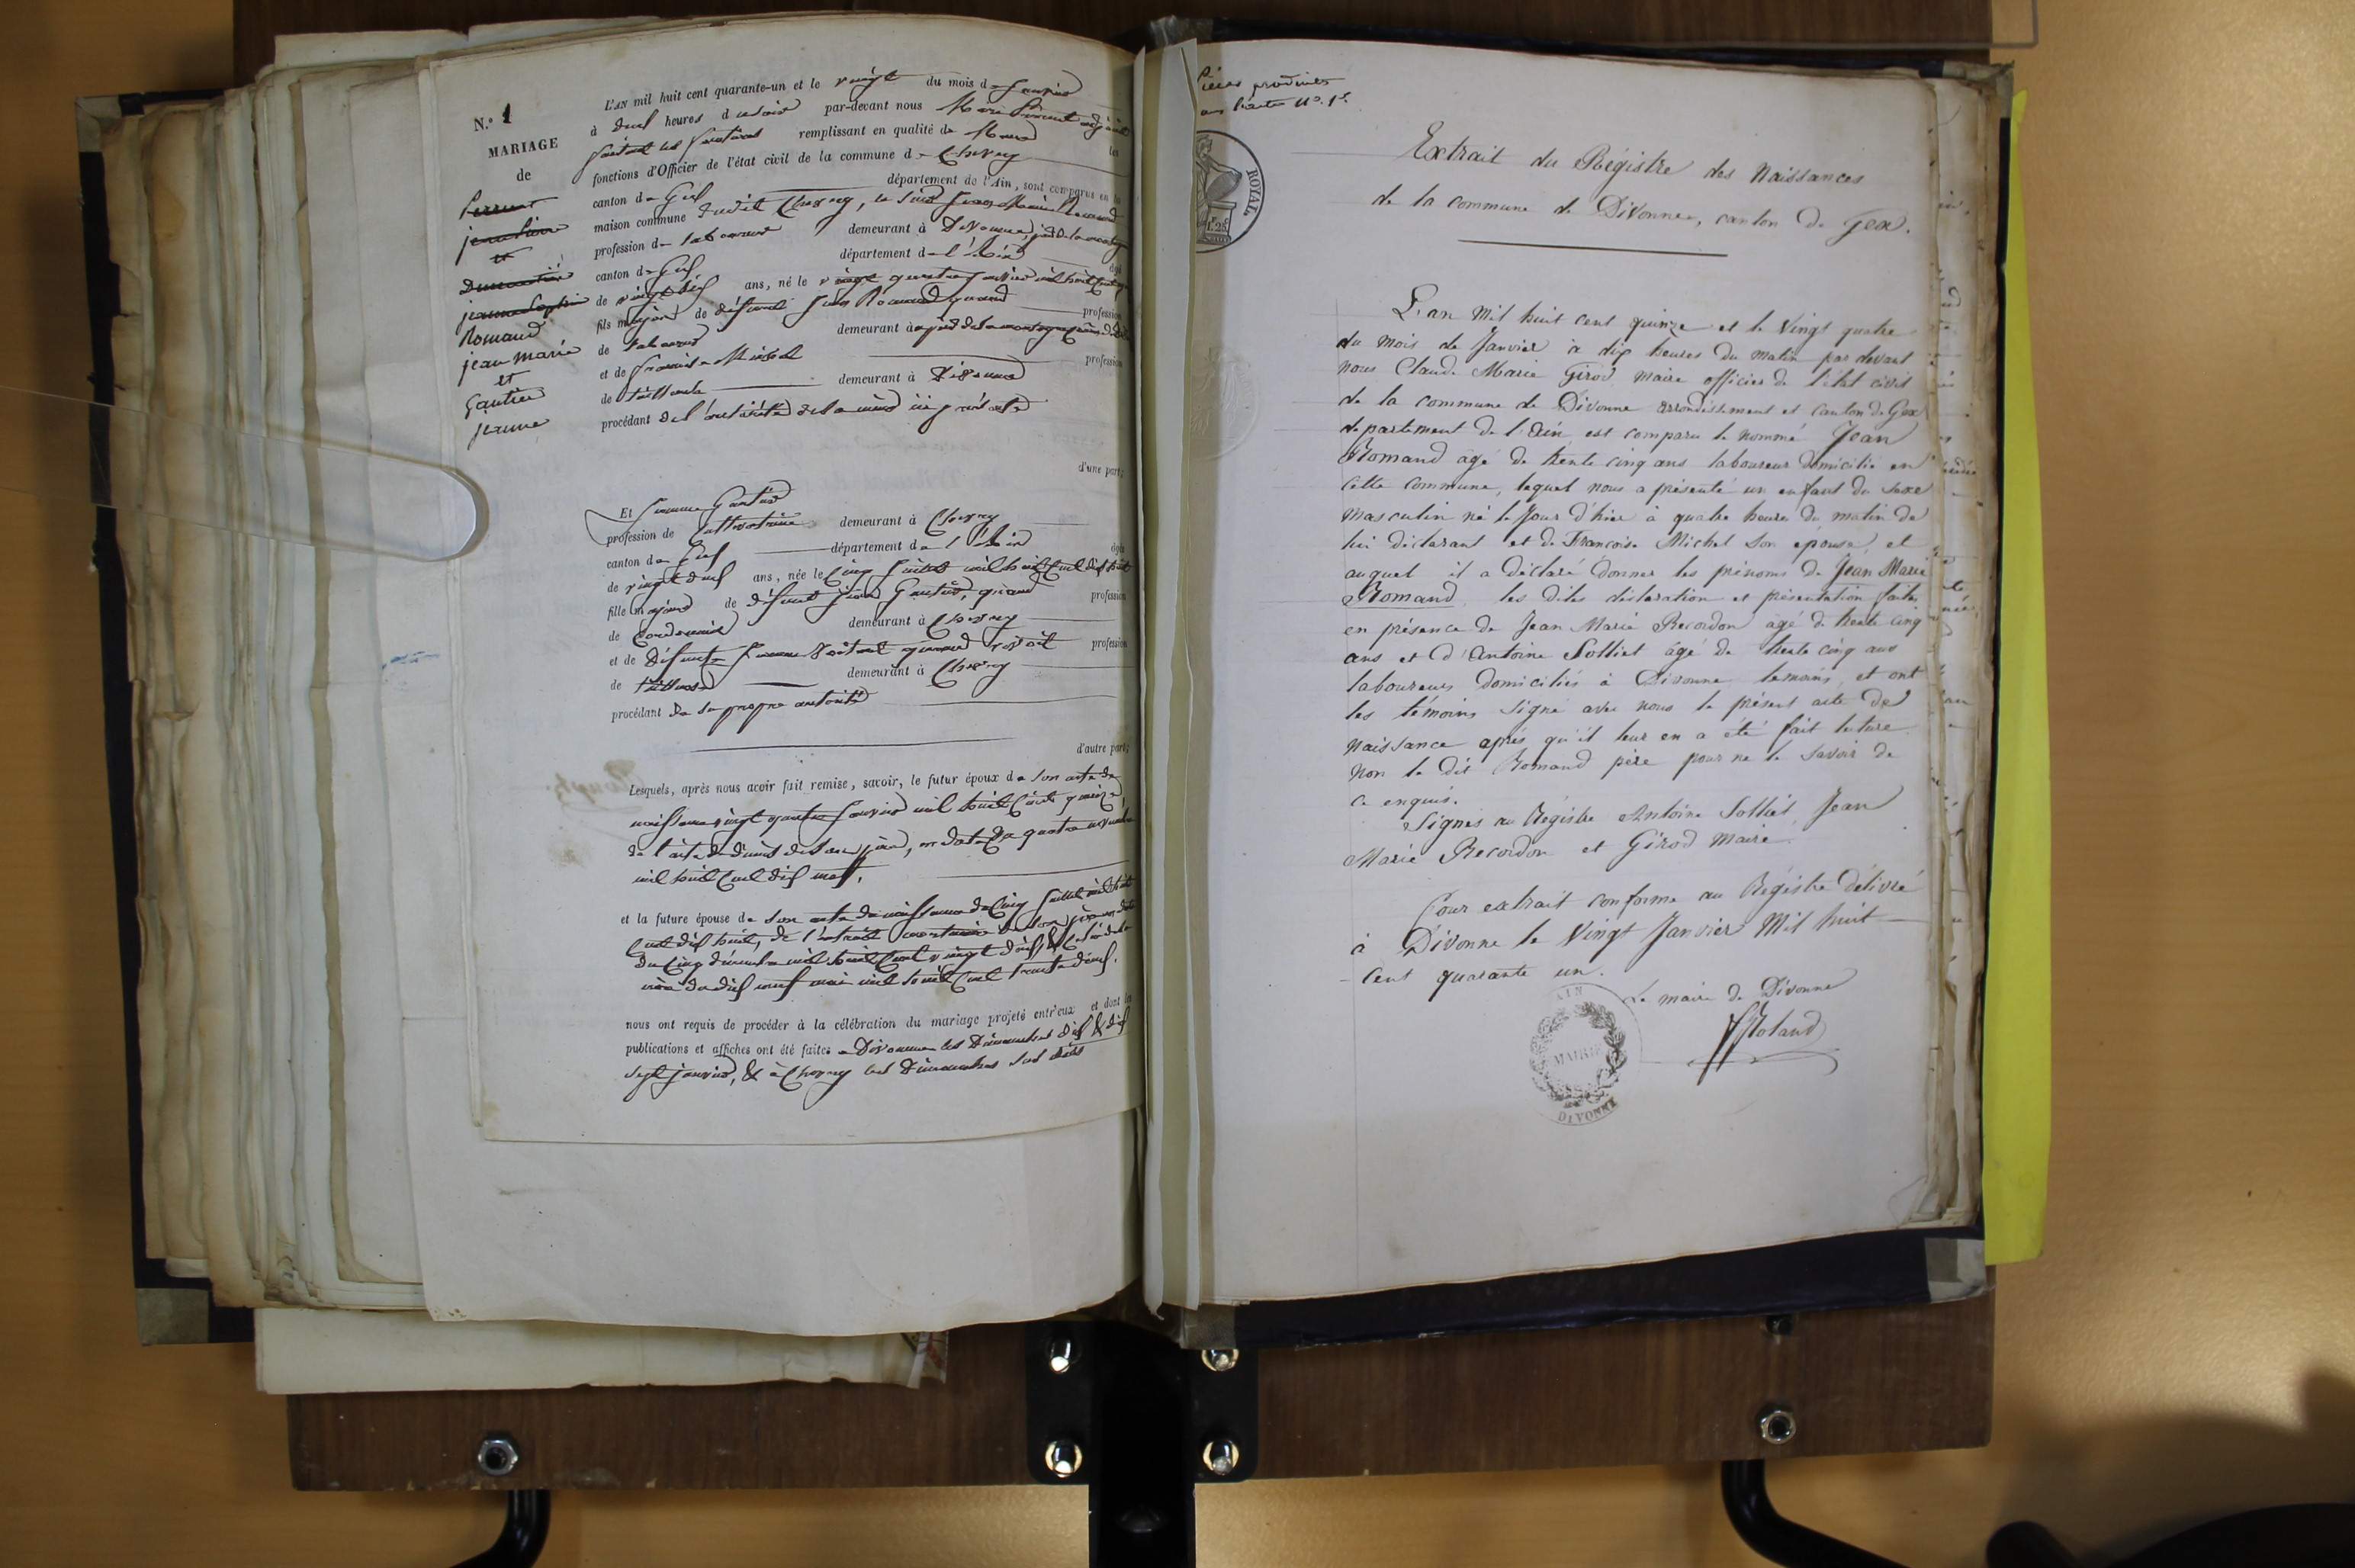 N.° 1
MARIAGE
de
Perruet
et
Romand
jean marie
et
Gautier
jeanne
L'AN mil huit cent quarante-un et le vingt du mois de Janvier
à deux heures du soir par-devant nous Marc adjoint
remplissant en qualité de Maire les
fonctions d'Officier de l'état civil de la commune de Chevry
canton de Gex département de l'Ain, sont comparus en la
maison commune dudit Chevry, le Jean Marie Romand
profession de laboureur demeurant à Divonne,
canton de Gex département de l'Ain âgé
de vingt six ans, né le vingt quatre janvier mil huit cent
fils majeur de défunt Jean Romand quand profession
de laboureur demeurant
et de Françoise Michel profession
de demeurant à Divonne
procédant de l'autorité de sa mère ici présente
d'une part;
Et Jeanne Gautier
profession de demeurant à Chevry
canton de Gex département de l'Ain âgée
de vingt deux ans, née le cinq Juillet mil huit cent dix huit
fille majeure de défunt Gautier, quand profession
de Cordonnier demeurant à Chevry
et de défunte Jeanne quand vivait profession
de demeurant à Chevry
procédant de sa propre autorité
d'autre part;
Lesquels, après nous avoir fait remise, savoir, le futur époux de son acte de
naissance vingt quatre Janvier mil huit cent quinze,
de l'acte de décès de son père, en date du quatre
mil huit cent dix neuf.
et la future épouse de son acte de naissance du cinq Juillet mil huit
cent dix huit, de l'extrait mortuaire de son père en date
du cinq décembre mil huit cent vingt deux, & celui de la
mère du dix neuf mai mil huit cent trente deux.
nous ont requis de procéder à la célébration du mariage projeté entr'eux et dont les
publications et affiches ont été faites à Divonne les Dimanches dix & dix
sept janvier, & à Chevry les Dimanches sus dits
Pièces produites
ROYAL.
Extrait du Régistre des Naissances
de la commune de Divonne, canton de Gex.
L'an mil huit cent quinze et le vingt quatre
du mois de Janvier à dix heures du matin par devant
nous Claude Marie Girod, maire officier de l'état civil
de la commune de Divonne arrondissement et canton de Gex
departement de l'Ain est comparu le nommé Jean
Romand agé de trente cinq ans laboureur domicilié en
cette commune, lequel nous a présenté un enfant du sexe
masculin né le jour d'hier à quatre heures du matin de
lui déclarant et de Francoise Michel son epouse, et
auquel il a déclaré donner les prénoms de Jean Marie
Romand, les dites déclaration et présentation faites
en présence de Jean Marie Recordon agé de trente cinq
ans et d'Antoine Solliet agé de trente cinq ans
laboureurs domiciliés à Divonne temoins, et ont
les témoins signé avec nous le présent acte de
naissance aprés qu'il leur en a été fait lecture
non le dit Romand père pour ne le savoir de
ce enquis.
Signés au Régistre Antoine Solliet, Jean
Marie Recordon et Girod Maire.
Pour extrait conforme au Régistre délivré
à Divonne le vingt Janvier mil huit
cent quarante un.
Le maire de Divonne
Roland
AIN
MAIRIE
DIVONNE